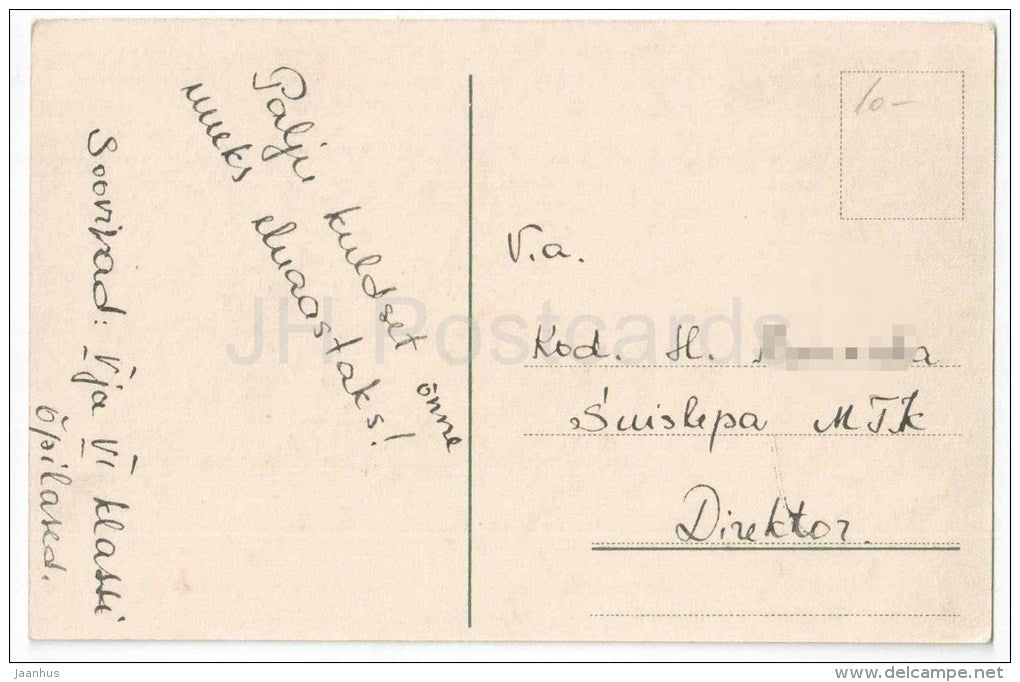 Palju kuldset õnne
uueks eluaastaks!
Soovivad: V ja VI klassi
õpilased.
10-
V.a.
Kod. H.
Suislepa MTK
Direktor.
JH Postcards
jaanhus
www.delcampe.net